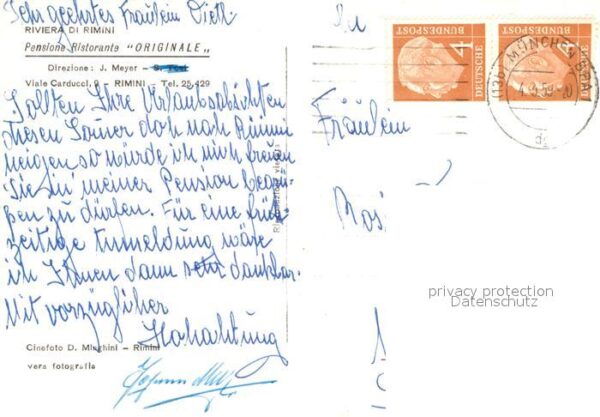 Sehr geehrtes Fräulein
RIVIERA DI RIMINI
Pensione Ristorante "ORIGINALE"
Direzione: J. Meyer -
Viale Carducci, 9 - RIMINI - Tel. 25.429
Sollten Ihre Urlaubsabsichten
diesen Somer doch nach Rimini
neigen so würde ich mich freuen
Sie in meiner Pension begrü-
ßen zu dürfen. Für eine früh-
zeitige Anmeldung wäre
ich Ihnen dann sehr dankbar.
Mit vorzüglicher
Hochachtung
Cinefoto D. Minghini - Rimini
vera fotografia
An
Fräulein
4 DEUTSCHE BUNDESPOST
DEUTSCHE BUNDESPOST
(13b) MÜNCHEN
4.4.59-20
privacy protection
Datenschutz